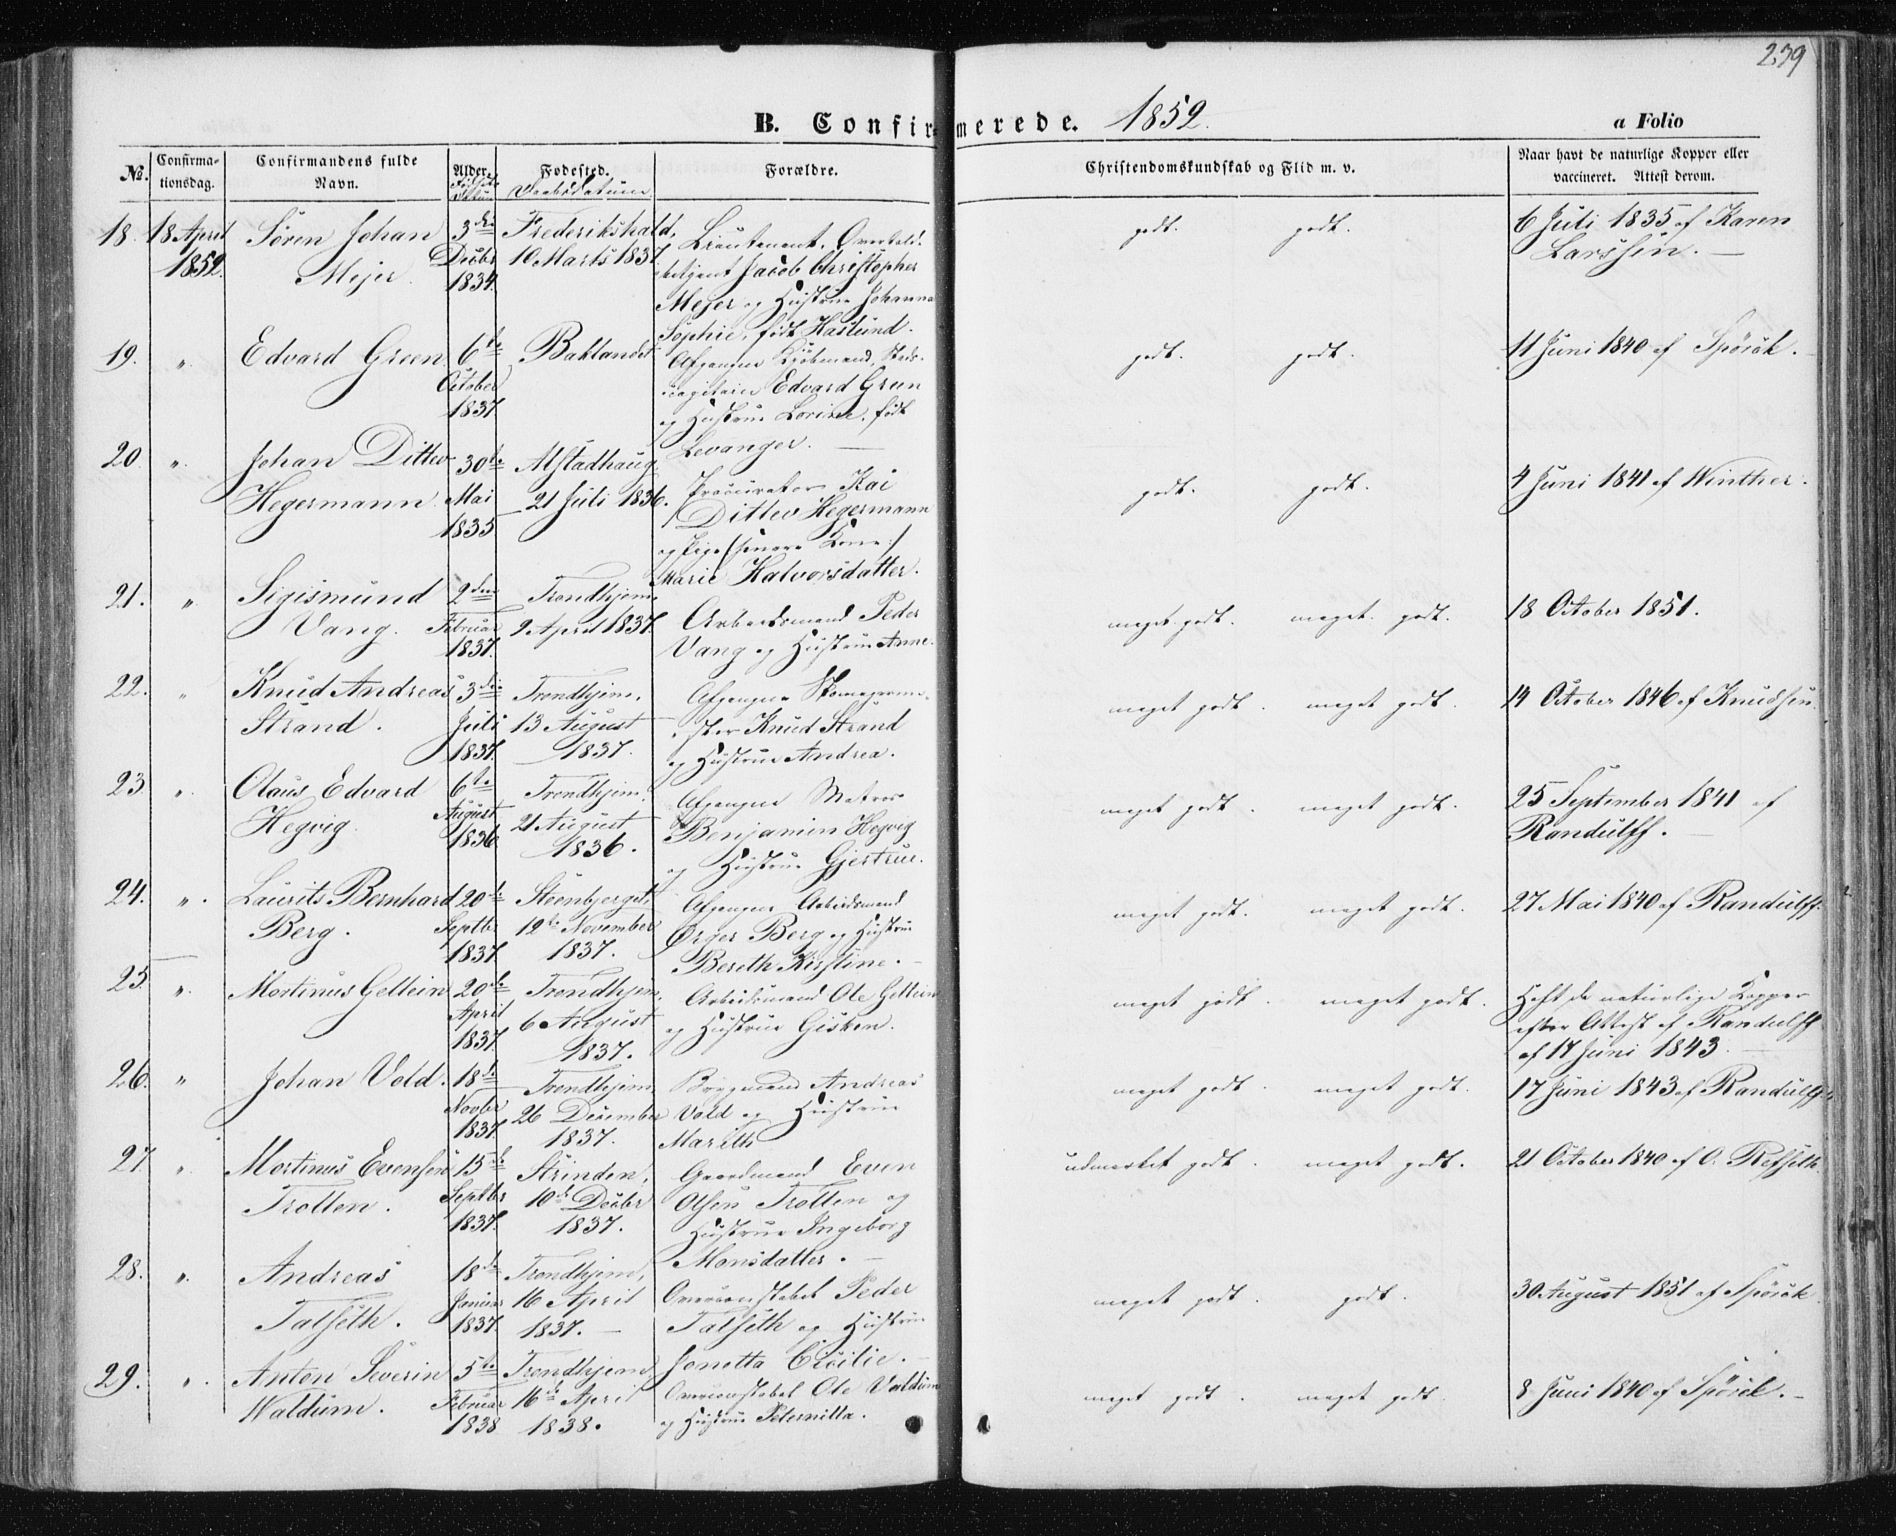 239
B. Confirmerede. 1852.
a Folio
No. Confirmationsdag. Confirmandens fulde Navn. Alder. Fødselsdatum Fødested. Daabsdatum Forældre. Christendomskundskab og Flid m. v. Naar havt de naturlige Kopper eller vaccineret. Attest derom.
18. 18 April Søren Johan 3die Frederikshald, Lieutenant,
1852. Mejer. Decbr 10 Marts 1837. Jacob Christopher
1834. Mejer og Hustrue Johanna
Sophie, født Haslund.
godt. godt. 6 Juli 1835 af Karen
Larssen.
19. " Edvard Green 6te Baklandet Afgangne Kjøbmand,
October Edvard Green
1837. og Hustrue Lorine, født
Levanger.
godt. godt. 11 Juni 1840 af Spörck.
20. " Johan Ditlev 30te Alstadhaug Procurator Kai
Hegermann. Mai 21 Juli 1836. Ditlev Hegermann
1835 og Pige (senere Kone)
Marie Halvorsdatter.
godt. godt. 4 Juni 1841 af Winther.
21. " Sigismund 2den Trondhjem, Arbeidsmand Peder
Vang. Februar 2 April 1837. Vang og Hustrue Anne.
1837.
meget godt. meget godt. 18 October 1851.
22. " Knud Andreas 3die Trondhjem, Afgangne Skomagerme-
Strand. Juli 13 August ster Knud Strand
1837. 1837. og Hustrue Andrea.
meget godt. meget godt. 14 October 1846 af Knudsen.
23. " Olaus Edvard 6te Trondhjem, Afgangne Matros
Hegvig. August 21 August Benjamin Hegvig
1836. 1836. og Hustrue Gjertrue.
meget godt. meget godt. 25 September 1841 af
Randulff.
24. " Laurits Bernhard 20de Steenberget, Afgangne Arbeidsmand
Berg. Septbr 12te November Ørger Berg og Hustrue
1837. 1837. Bereth Kirstine.
meget godt. meget godt. 27 Mai 1840 af Randulff.
25. " Mortinus Gellein 20de Trondhjem, Arbeidsmand Ole Gellein
April 6 August og Hustrue Gisken.
1837. 1837.
meget godt. meget godt. Haft de naturlige Kopper
efter Attest af Randulff
af 17 Juni 1843.
26. " Johan Vold. 18de Trondhjem, Bryggmand Andreas
Novbr 26 December Vold og Hustrue
1837. 1837. Mareth
meget godt. meget godt. 17 Juni 1843 af Randulff.
27. " Mortinus Evensen 15de Strinden, Gaardmand Even
Trolten. Septbr 10de Decbr Olsen Trolten og
1837. 1837. Hustrue Ingeborg
Monsdatter.
udmærket godt. meget godt. 21 October 1840 af O. Refseth.
28. " Andreas 18de Trondhjem, Overconstabel Peder
Talseth. Januar 16 April Talseth og Hustrue
1837. 1837. Jonetta Cicilie.
meget godt. godt. 30 August 1851 af Spörck.
29. " Anton Severin 5te Trondhjem, Overconstabel Ole Valdum
Waldum. Februar 16de April og Hustrue Peternilla.
1838 1838.
meget godt. meget godt. 8 Juni 1840 af Spörck.